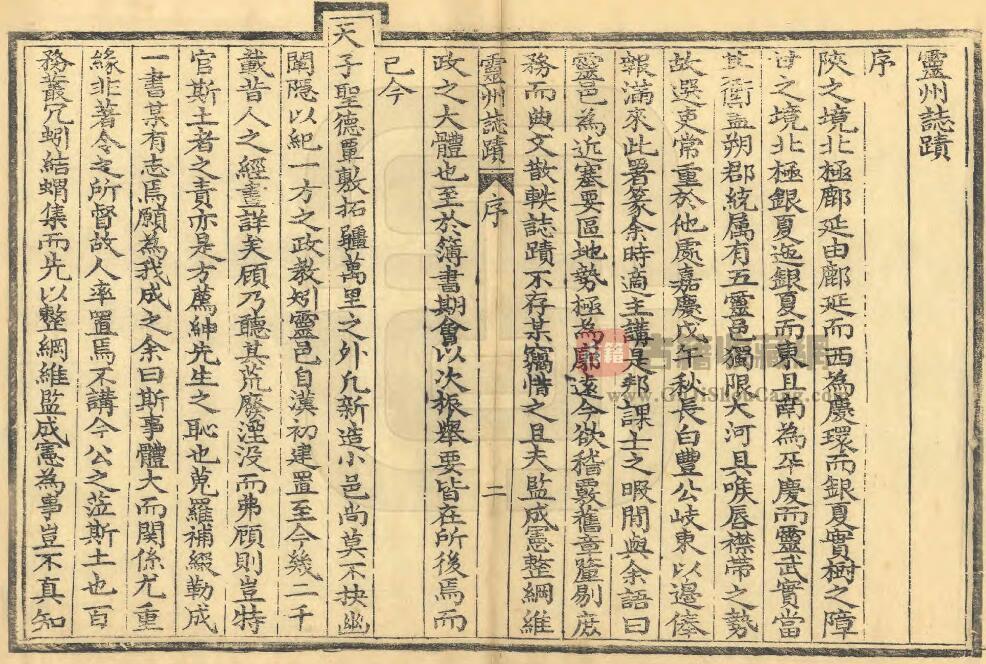 靈州誌蹟
序
陝之境北極鄜延由鄜延而西為慶環而銀夏實樹之障
甘之境北極銀夏迤銀夏而東且南為平慶而靈武實當
其衝蓋朔郡統属有五靈邑獨限大河具喉唇襟帶之勢
故選吏常重於他處嘉慶戊午秋長白豐公岐東以邉俸
報滿來此署篆余時適主講是邦課士之暇間與余語曰
靈邑為近塞要區地勢極為廓遠今欲稽覈舊章釐剔庶
務而典文散軼誌蹟不存某竊惜之且夫監成憲整綱維
靈州誌蹟 序 二
政之大體也至於簿書期會以次振舉要皆在所後焉而
已今
天子聖德覃敷拓疆萬里之外凢新造小邑尚莫不抉幽
闡隠以紀一方之政教矧靈邑自漢初建置至今幾二千
載昔人之經畫詳矣顧乃聽其荒廢湮没而弗顧則豈特
官斯土者之責亦是方薦紳先生之恥也蒐羅補綴勒成
一書某有志焉願為我成之余曰斯事體大而関係尤重
緣非著令之所督故人率置焉不講今公之蒞斯土也百
務叢冗蚓結蝟集而先以整綱維監成憲為事豈不真知
古籍收藏網
www.GuJiShouCang.com